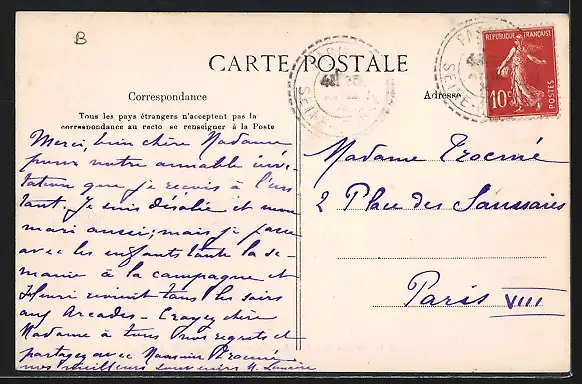 B
CARTE POSTALE
Correspondance
Adresse
Tous les pays étrangers n'acceptent pas la
correspondance au recto se renseigner à la Poste
REPUBLIQUE FRANÇAISE
10c
POSTES
Merci, bien chère Madame
pour votre aimable invi-
tation que je reçois à l'ins
tant. Je suis désolée et mon
mari aussi; mais je passe
avec les enfants toute la se-
maine à la campagne et
Henri revient tous les soirs
aux Arcades - Croyez chère
Madame à tous nos regrets et
partagez avec Monsieur Trocmé
nos meilleurs souvenirs
Madame Trocmé
2 Place des Saussaies
Paris VIII